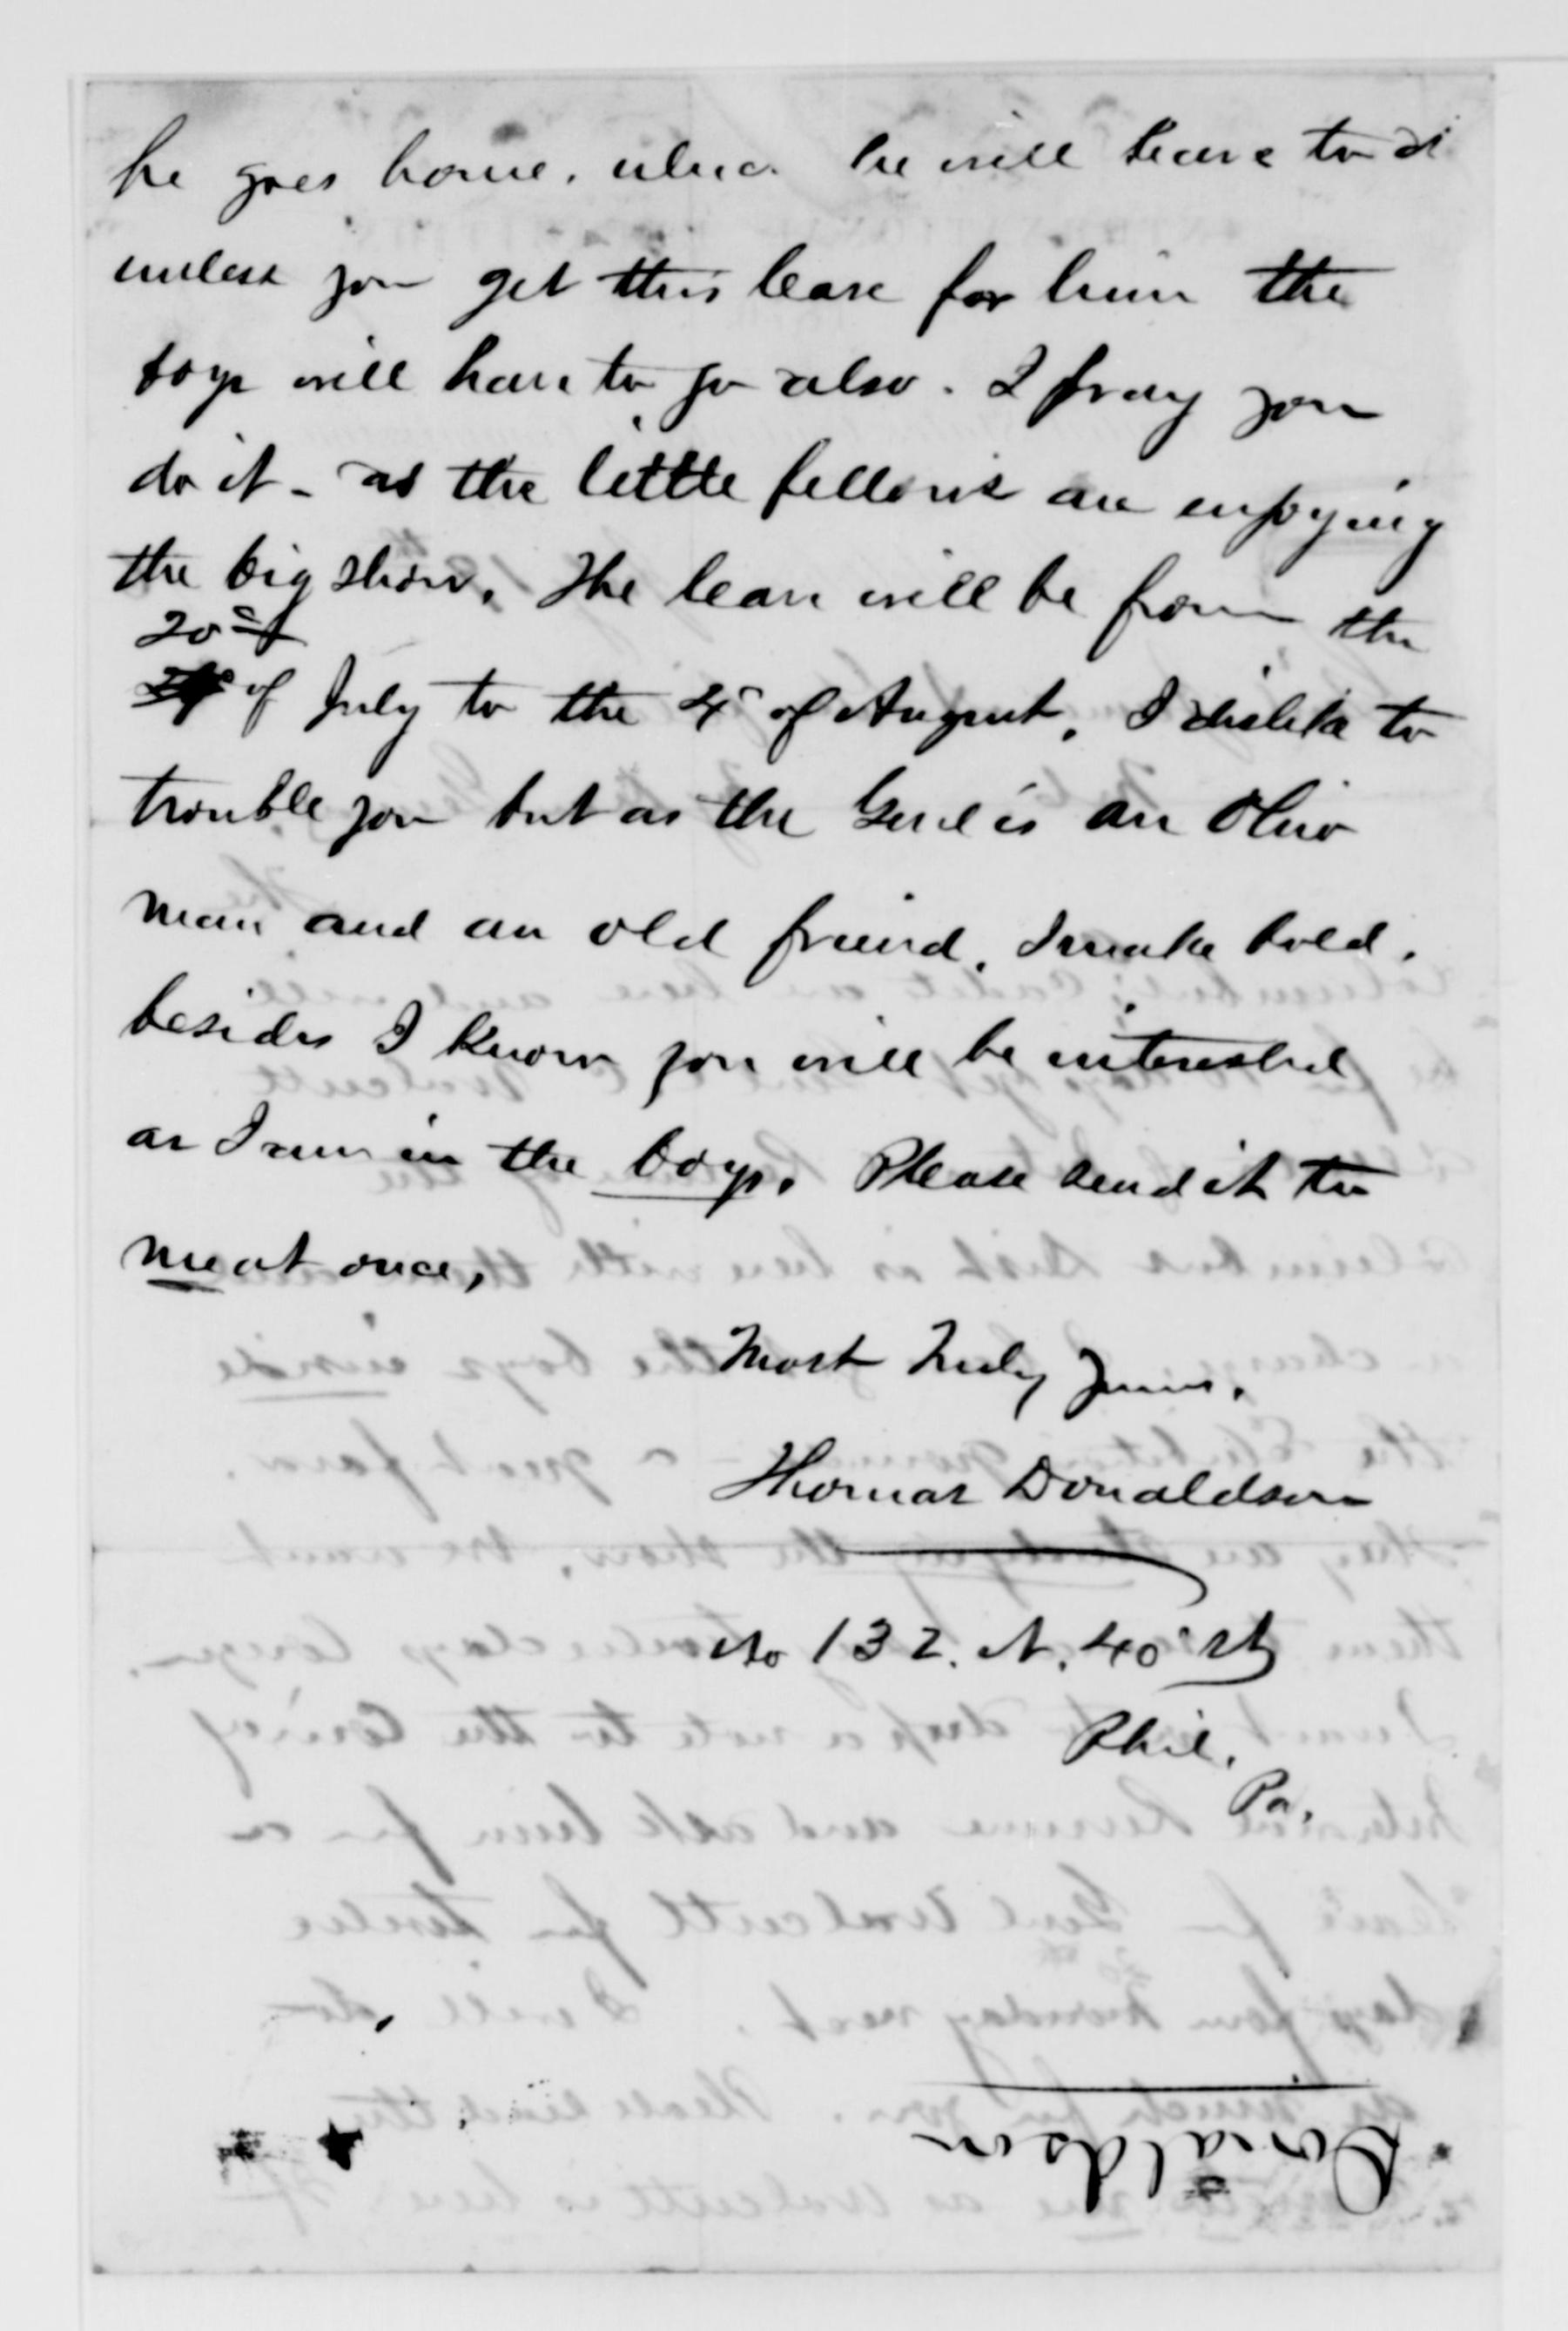 he goes home, which he will have to do
unless you get this leave for him the
boys will have to go also. I pray you
do it - as the little fellows are enjoying
the big show. The leave will be from the
20th
of July to the 4" of August. I dislike to
trouble you but as the Genl is an Ohio
man and an old friend, I make bold.
besides I know you will be interested
as I am in the boys. Please send it to
me at once,
Most Truly Yours,
Thomas Donaldson
No 132. N. 40" St
Phil.
Pa.
Donaldson